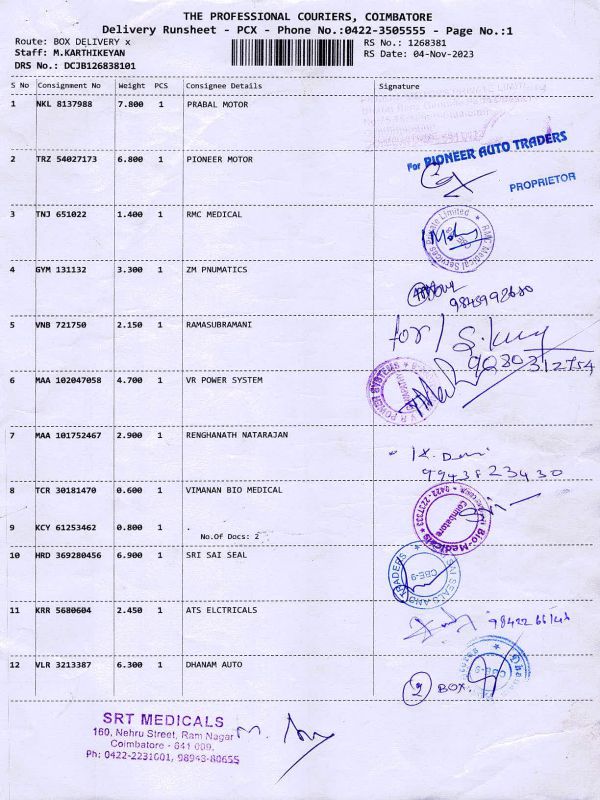 THE PROFESSIONAL COURIERS, COIMBATORE
Delivery Runsheet - PCX - Phone No.:0422-3505555 - Page No.:1
Route: BOX DELIVERY x RS No.: 1268381
Staff: M.KARTHIKEYAN RS Date: 04-Nov-2023
DRS No.: DCJB126838101
S No Consignment No Weight PCS Consignee Details Signature
1 NKL 8137988 7.800 1 PRABAL MOTOR
2 TRZ 54027173 6.800 1 PIONEER MOTOR
For PIONEER AUTO TRADERS
PROPRIETOR
3 TNJ 651022 1.400 1 RMC MEDICAL
4 GYM 131132 3.300 1 ZM PNUMATICS
5 VNB 721750 2.150 1 RAMASUBRAMANI
for
9080312754
6 MAA 102047058 4.700 1 VR POWER SYSTEM
7 MAA 101752467 2.900 1 RENGHANATH NATARAJAN
9943823430
8 TCR 30181470 0.600 1 VIMANAN BIO MEDICAL
Coimbatore
9 KCY 61253462 0.800 1 .
No.Of Docs: 2
10 HRD 369280456 6.900 1 SRI SAI SEAL
CBE-9
11 KRR 5680604 2.450 1 ATS ELCTRICALS
12 VLR 3213387 6.300 1 DHANAM AUTO
2 BOX
SRT MEDICALS
160, Nehru Street, Ram Nagar
Coimbatore - 641 009.
Ph: 0422-2231001, 98943-80655